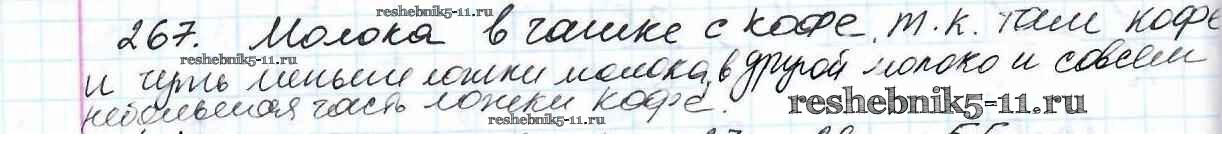 reshebnik5-11.ru
267. Молока в чашке с кофе, т.к. там кофе
reshebnik5-11.ru
и чуть меньше ложки молока, в другой молоко и совсем
небольшая часть ложки кофе. reshebnik5-11.ru
reshebnik5-11.ru